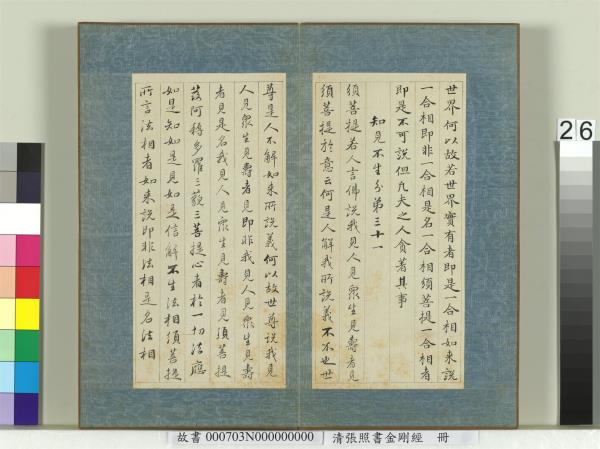 世界何以故若世界實有者即是一合相如來說
一合相即非一合相是名一合相須菩提一合相者
即是不可說但凡夫之人貪著其事
知見不生分第三十一
須菩提若人言佛說我見人見眾生見壽者見
須菩提於意云何是人解我所說義不不也世
尊是人不解如來所說義何以故世尊說我見
人見眾生見壽者見即非我見人見眾生見壽
者見是名我見人見眾生見壽者見須菩提發
阿耨多羅三藐三菩提心者於一切法應
如是知如是見如是信解不生法相須菩提
所言法相者如來說即非法相是名法相
26
故書 000703N000000000 清張照書金剛經 冊